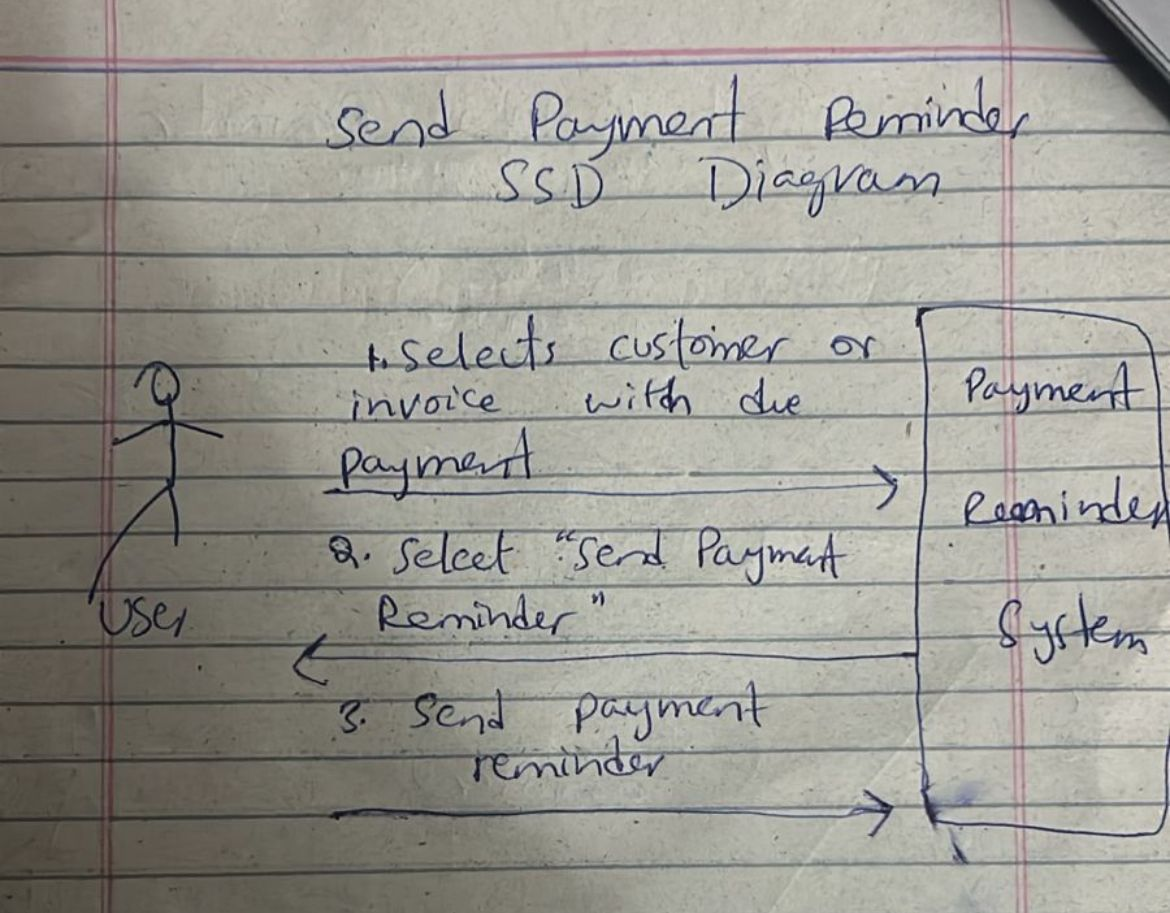 Send Payment Reminder
SSD Diagram
1. Selects customer or
invoice with due
payment
2. Select "Send Payment
Reminder"
3. Send payment
reminder
User
Payment
Reminder
System